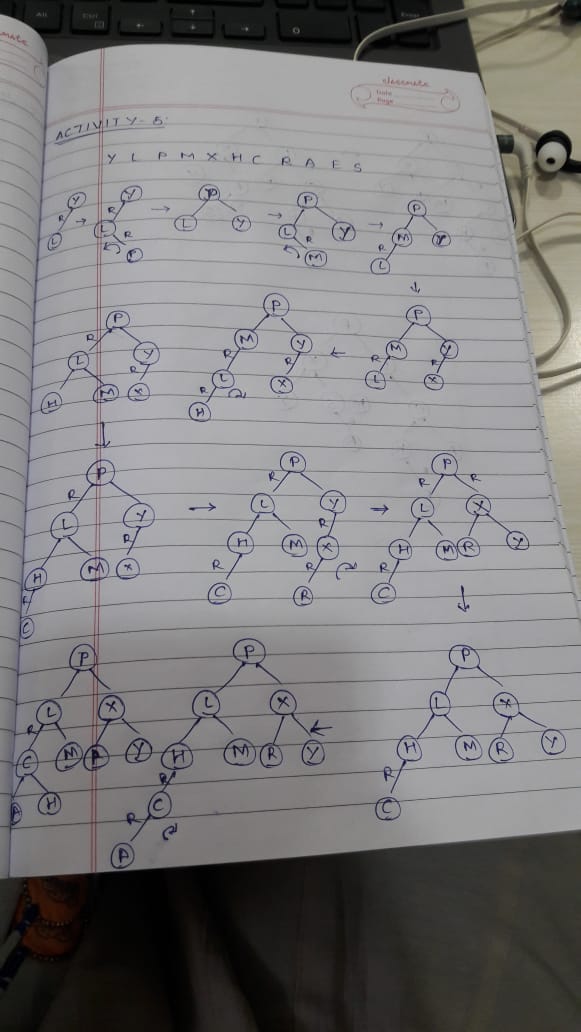 classmate
Date
Page
ACTIVITY - 5:
Y L P M X H C R A E S
Y R L
Y R L R P
P L Y
P L R M Y
P M Y R L
P R L Y R H M X
P M Y R L R X R H
P M Y R L R X
P R L Y R H M X R C
P R L Y R H M X R R C R
P R R L X H M R Y R C
P L X R C M R Y A H
P L X H M R Y R C R A
P L X H M R Y R C